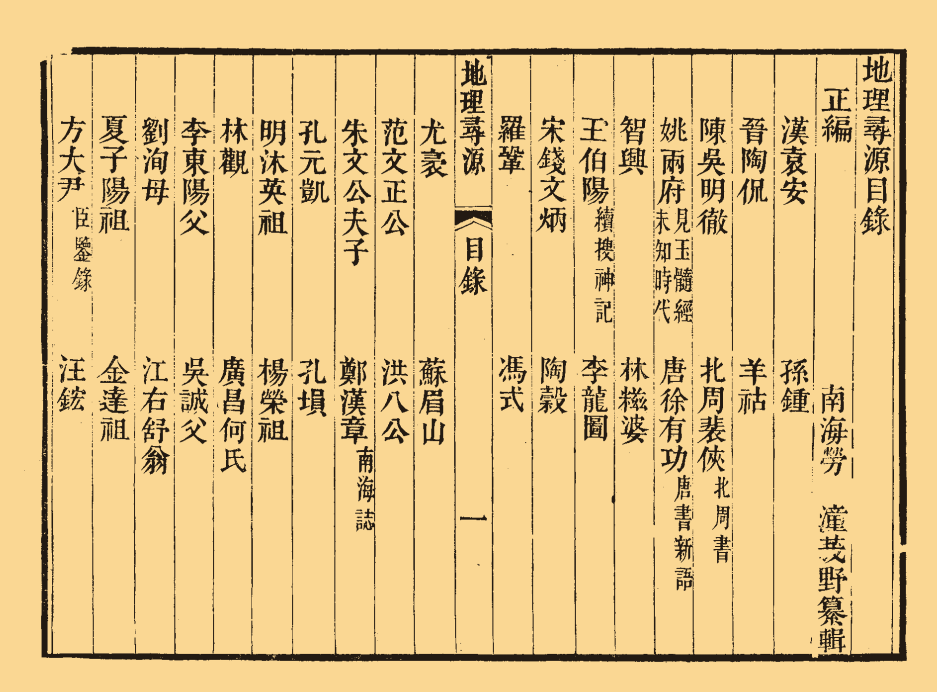 地理尋源目錄
正編　南海勞　潼茂野纂輯
漢袁安　孫鍾
晉陶侃　羊祜
陳吳明徹　北周裴俠北周書
姚兩府見玉髓經未知時代　唐徐有功唐書新語
智興　林糍婆
王伯陽續搜神記　李龍圖
宋錢文炳　陶穀
羅鞏　馮式
地理尋源　目錄　一
尤袤　蘇眉山
范文正公　洪八公
朱文公夫子　鄭漢章南海誌
孔元凱　孔塤
明沐英祖　楊榮祖
林觀　廣昌何氏
李東陽父　吳誠父
劉洵母　江右舒翁
夏子陽祖　金達祖
方大尹臣鑒錄　汪鋐